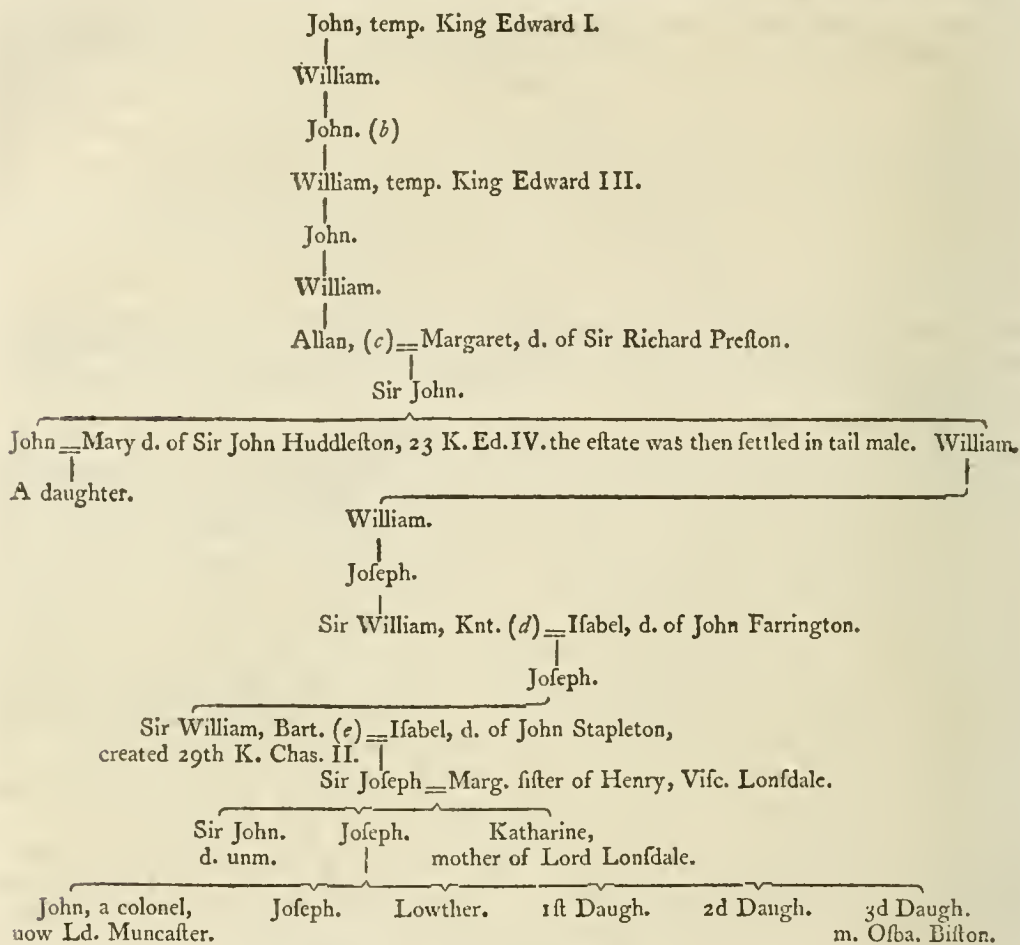 John, temp. King Edward I.
William.
John. (b)
William, temp. King Edward III.
John.
William.
Allan, (c) = Margaret, d. of Sir Richard Preſton.
Sir John.
John = Mary d. of Sir John Huddleſton, 23 K. Ed. IV. the eſtate was then ſettled in tail male. William.
A daughter.
William.
Joſeph.
Sir William, Knt. (d) = Iſabel, d. of John Farrington.
Joſeph.
Sir William, Bart. (e) = Iſabel, d. of John Stapleton,
created 29th K. Chas. II.
Sir Joſeph = Marg. ſiſter of Henry, Viſc. Lonſdale.
Sir John. Joſeph. Katharine,
d. unm. mother of Lord Lonſdale.
John, a colonel, Joſeph. Lowther. 1ſt Daugh. 2d Daugh. 3d Daugh.
now Ld. Muncaſter. m. Oſba. Biſton.